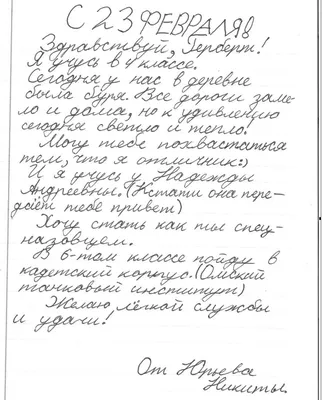 С 23 ФЕВРАЛЯ!
Здравствуй, Герберт!
Я учусь в 4 классе.
Сегодня у нас в деревне
была буря. Все дороги заме-
ло и дома, но к удивлению
сегодня светло и тепло.
Могу тебе похвастаться
тем, что я отличник:)
И я учусь у Надежды
Андреевны. (Кстати она пере-
даёт тебе привет)
Хочу стать как ты спец-
назовцем.
В 6-том классе пойду в
кадетский корпус. (Омский
танковый институт)
Желаю, лёгкой службы
и удачи!
От Юрьева
Никиты.